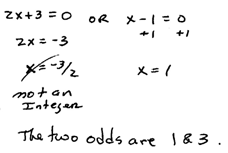 2x+3=0 OR x-1=0
+1 +1
2x=-3
x=-3/2 x=1
not an
Integer
The two odds are 1&3.